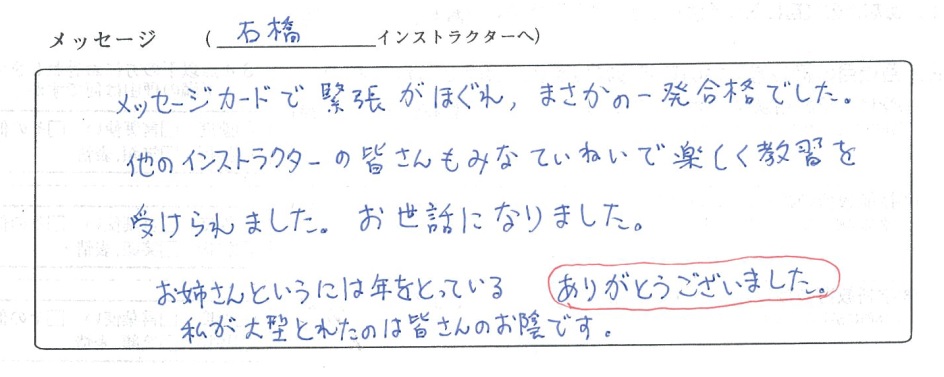 メッセージ　(石橋インストラクターへ)
メッセージカードで緊張がほぐれ,まさかの一発合格でした。
他のインストラクターの皆さんもみなていねいで楽しく教習を
受けられました。お世話になりました。
お姉さんというには年をとっている　ありがとうございました。
私が大型とれたのは皆さんのお陰です。